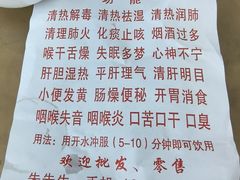 功能
清热解毒 清热祛湿 清热润肺
清理肺火 化痰止咳 烟酒过多
喉干舌燥 失眠多梦 心神不宁
肝胆湿热 平肝理气 清肝明目
小便发黄 肠燥便秘 开胃消食
咽喉失音 咽喉炎 口苦口干 口臭
用法：用开水冲服（5-10）分钟即可饮用
欢迎批发、零售